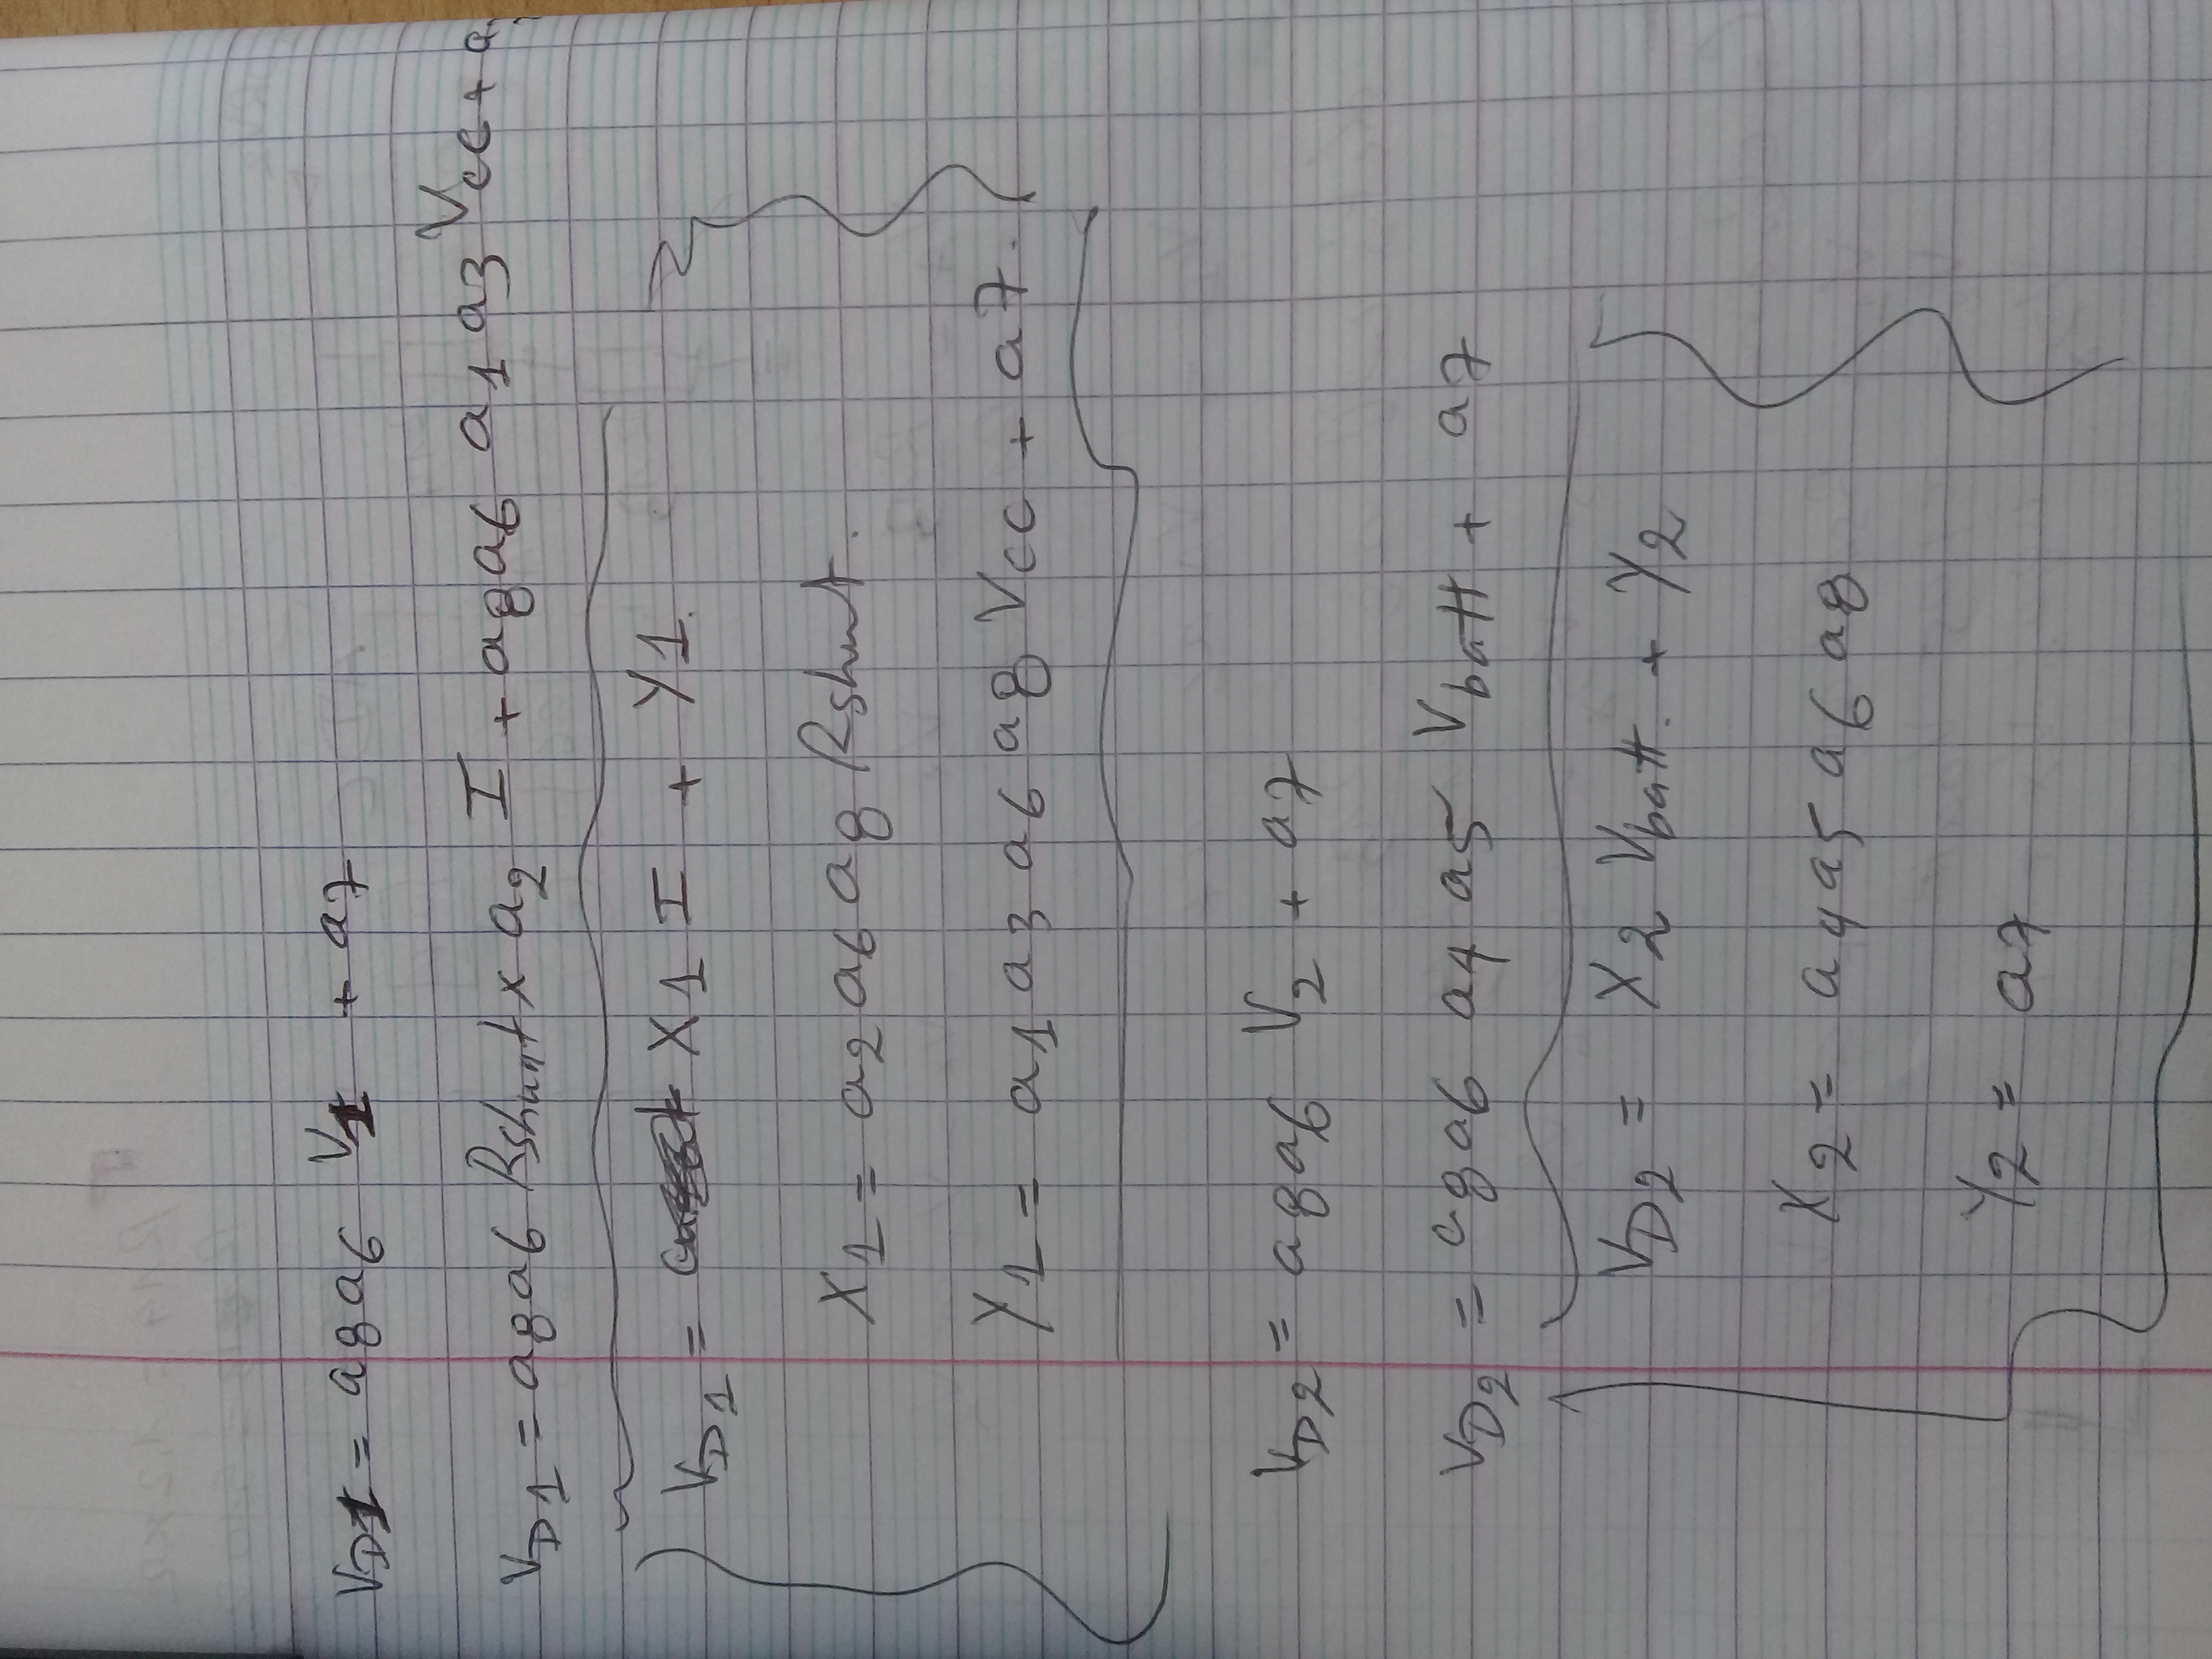 V_D1 = a8 a6 V1 + a7
V_D1 = a8 a6 Rshunt x a2 I + a8 a6 a1 a3 Vcc + a
V_D1 = X1 I + Y1.
X1 = a2 a6 a8 Rshunt.
Y1 = a1 a3 a6 a8 Vcc + a7.
V_D2 = a8 a6 V2 + a7
V_D2 = a8 a6 a4 a5 Vbatt + a7
V_D2 = X2 Vbatt. + Y2
X2 = a4 a5 a6 a8
Y2 = a7